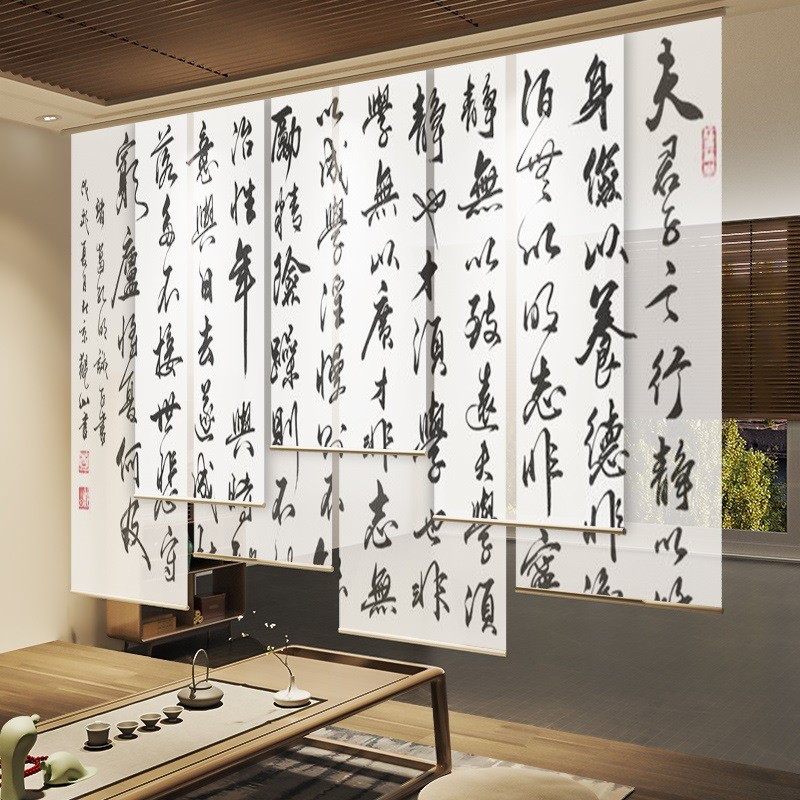 夫君子之行靜以
身儉以養德非
泊無以明志非寧
靜無以致遠夫學須
靜也才須學也非
學無以廣才非志無
以成學淫慢則不能
勵精險躁則不
治性年與時
意與日去遂成
落多不接世悲守
窮廬將復何及
諸葛孔明誡子書
戊戌夏月於京山書